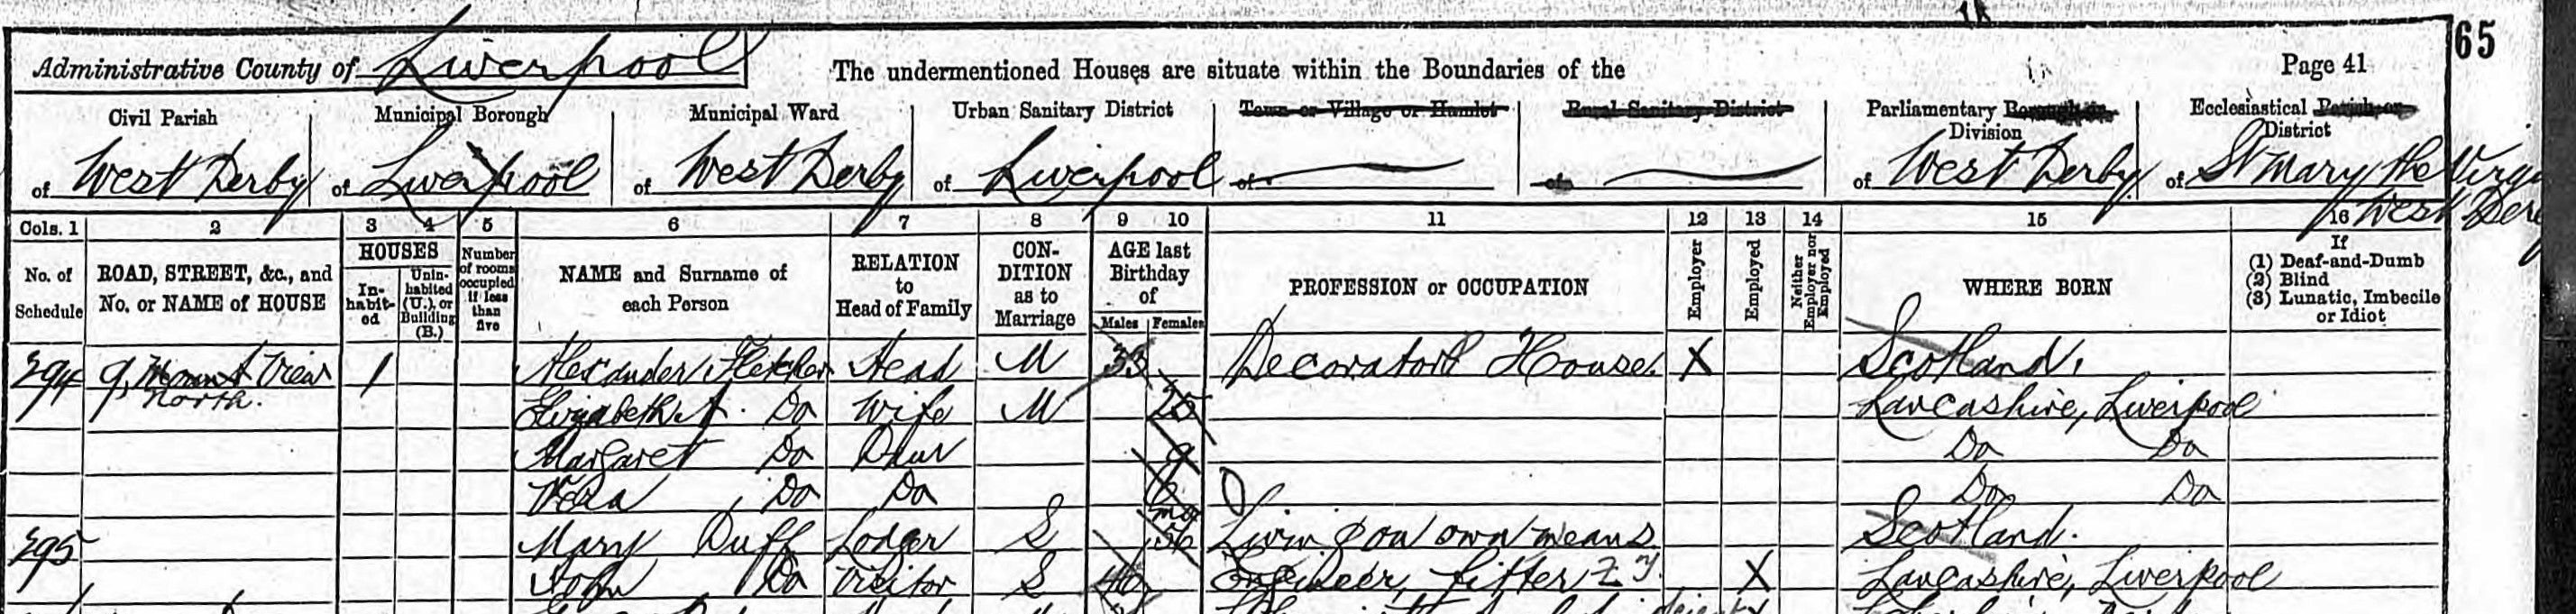 65
Administrative County of Liverpool The undermentioned Houses are situate within the Boundaries of the Page 41
Civil Parish of West Derby
Municipal Borough of Liverpool
Municipal Ward of West Derby
Urban Sanitary District of Liverpool
Town or Village or Hamlet of
Rural Sanitary District of
Parliamentary Borough or Division of West Derby
Ecclesiastical Parish or District of St Mary the Virgin West Derby
Cols. 1 2 3 4 5 6 7 8 9 10 11 12 13 14 15 16
No. of Schedule
ROAD, STREET, &c., and No. or NAME of HOUSE
HOUSES
In-habit-ed
Unin-habited (U.), or Building (B.)
Number of rooms occupied if less than five
NAME and Surname of each Person
RELATION to Head of Family
CON-DITION as to Marriage
AGE last Birthday of
Males Females
PROFESSION or OCCUPATION
Employer
Employed
Neither Employer nor Employed
WHERE BORN
If
(1) Deaf-and-Dumb
(2) Blind
(3) Lunatic, Imbecile or Idiot
294 9, Mount View 1 Alexander Fletcher Head M 33 Decorator House. X Scotland.
North. Elizabeth A. Do Wife M 25 Lancashire, Liverpool
Margaret Do Daur Do Do
Vera Do Do 6 mo Do Do
295 Mary Duff Lodger S Living on own means Scotland.
John Do Visitor S 40 Engineer, fitter X Lancashire, Liverpool